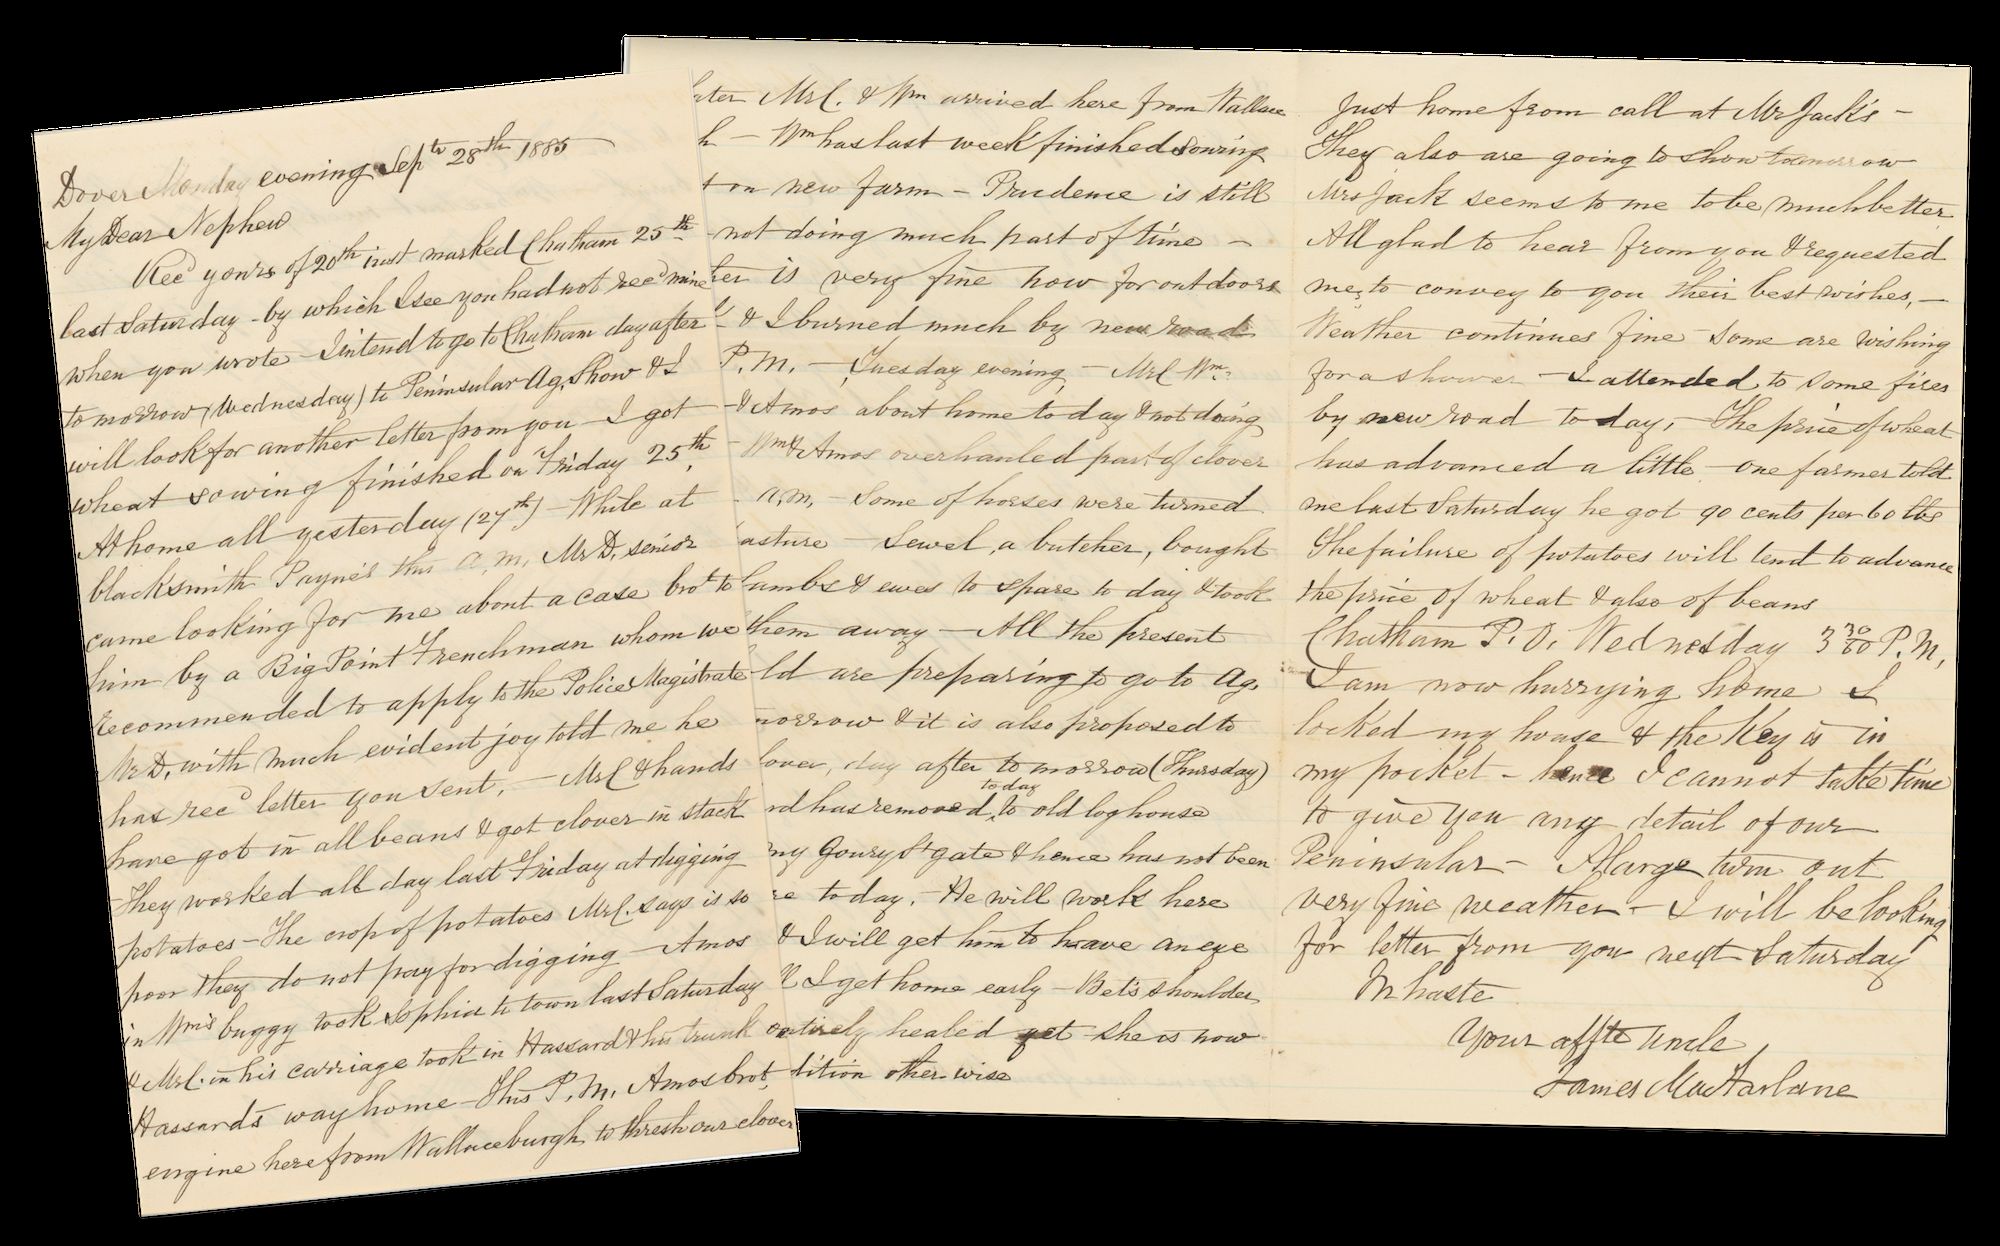 Dover Monday evening Septr 28th 1885
My Dear Nephew
Recd yours of 20th inst marked Chatham 25th
last Saturday - by which I see you had not recd mine
when you wrote - I intend to go to Chatham day after
tomorrow (Wednesday) to Peninsular Ag. Show & I
will look for another letter from you - I got
wheat sowing finished on Friday 25th
At home all yesterday (27th) - While at
blacksmith Payne's this a.m. Mr D. senior
came looking for me about a case brot to
him by a Big Point Frenchman whom we
recommended to apply to the Police Magistrate
Mr D. with much evident joy told me he
has recd letter you sent. - Mr C & hands
have got in all beans & got clover in stack
They worked all day last Friday at digging
potatoes - The crop of potatoes Mr C. says is so
poor they do not pay for digging - Amos
in Wm's buggy took Sophia to town last Saturday
& Mr C. in his carriage took in Hassard & his trunk
Hassard's way home - This P.M. Amos brot
engine here from Wallaceburgh to thresh our clover
ater Mr C. & Wm arrived here from Wallace
h - Wm has last week finished sowing
t on new farm - Prudence is still
not doing much part of time -
her is very fine now for outdoors
- & I burned much by new road
P.M. - Tuesday evening - Mr C Wm
& Amos about home today & not doing
- Wm & Amos overhauled part of clover
a.m. - Some of horses were turned
asture - Sewel, a butcher, bought
lambs & ewes to spare to day & took
them away - All the present
ld are preparing to go to Ag.
morrow & it is also proposed to
lover, day after tomorrow (Thursday)
today
rd has removed to old log house
my Goury St gate & hence has not been
re today. - He will work here
& I will get him to have an eye
ll I get home early - Bet's shoulder
entirely healed yet - she is now
dition otherwise
Just home from call at Mr Jack's -
They also are going to show tomorrow
Mrs Jack seems to me to be much better
All glad to hear from you & requested
me to convey to you their best wishes, -
Weather continues fine - Some are wishing
for a shower - I attended to some fires
by new road today, - The price of wheat
has advanced a little - one farmer told
me last Saturday he got 90 cents per 60 lbs
The failure of potatoes will tend to advance
the price of wheat & also of beans
Chatham P.O. Wednesday 3 30/60 P.M.
I am now hurrying home I
locked my house & the Key is in
my pocket - hence I cannot take time
to give you any detail of our
Peninsular - A large turn out
very fine weather - I will be looking
for letter from you next Saturday
In haste
Your affte uncle
James MacFarlane